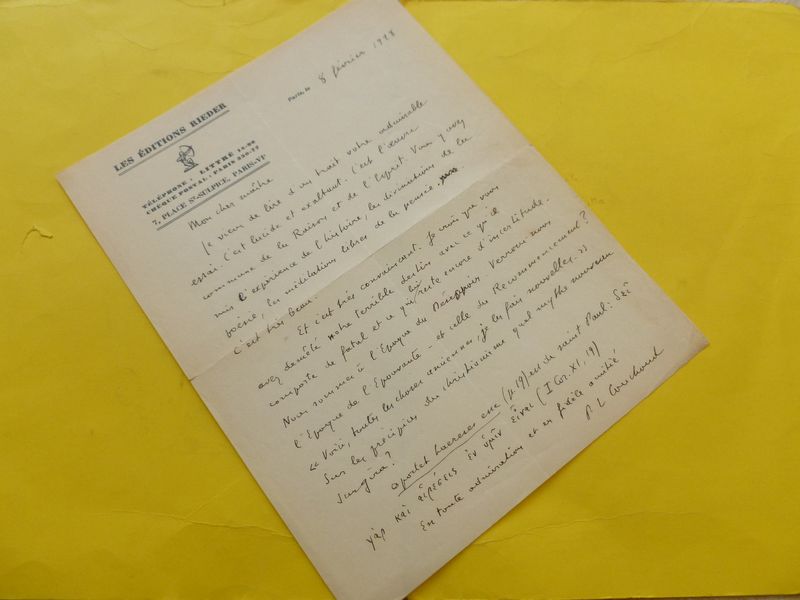 LES ÉDITIONS RIEDER
TÉLÉPHONE : LITTRÉ
CHÈQUE POSTAL : PARIS
7, PLACE St-SULPICE, PARIS-VIe
Paris, le 8 février 1938
Mon cher maître
Je viens de lire d'un trait votre admirable
essai. C'est lucide et exaltant. C'est l'œuvre
commune de la Raison et de l'Esprit. Vous y avez
mis l'expérience de l'histoire, les divinations de la
poésie, les méditations libres de la pensée pure.
C'est très beau.
Et c'est très convaincant. Je crois que vous
avez démêlé notre terrible destin avec ce qu'il
comporte de fatal et ce qu'il reste encore d'incertitude.
Nous sommes à l'Époque du Désespoir. Verrons-nous
l'Époque de l'Épouvante - et celle du Recommencement ?
« Voici, toutes les choses anciennes, je les fais nouvelles. »
Sur les précipices du christianisme quel mythe nouveau
surgira ?
oportet haereses esse (p. 19) est de saint Paul : δεῖ
γὰρ καὶ αἱρέσεις ἐν ὑμῖν εἶναι (I Cor. XI, 19)
En toute admiration et en fidèle amitié
P. L. Couchoud